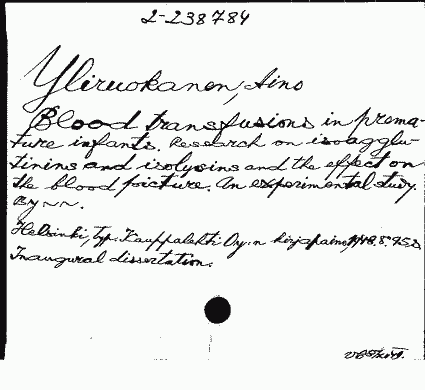 2-238784
Yliruokanen, Aino
Blood transfusions in prema-
ture infants. Research on isoagglu-
tinins and isolysins and the effect on
the blood picture. An experimental study.
By ~~.
Helsinki, typ. Kauppalehti Oy:n kirjapaino, 1948. 8°. 75 s.
Inaugural dissertation.